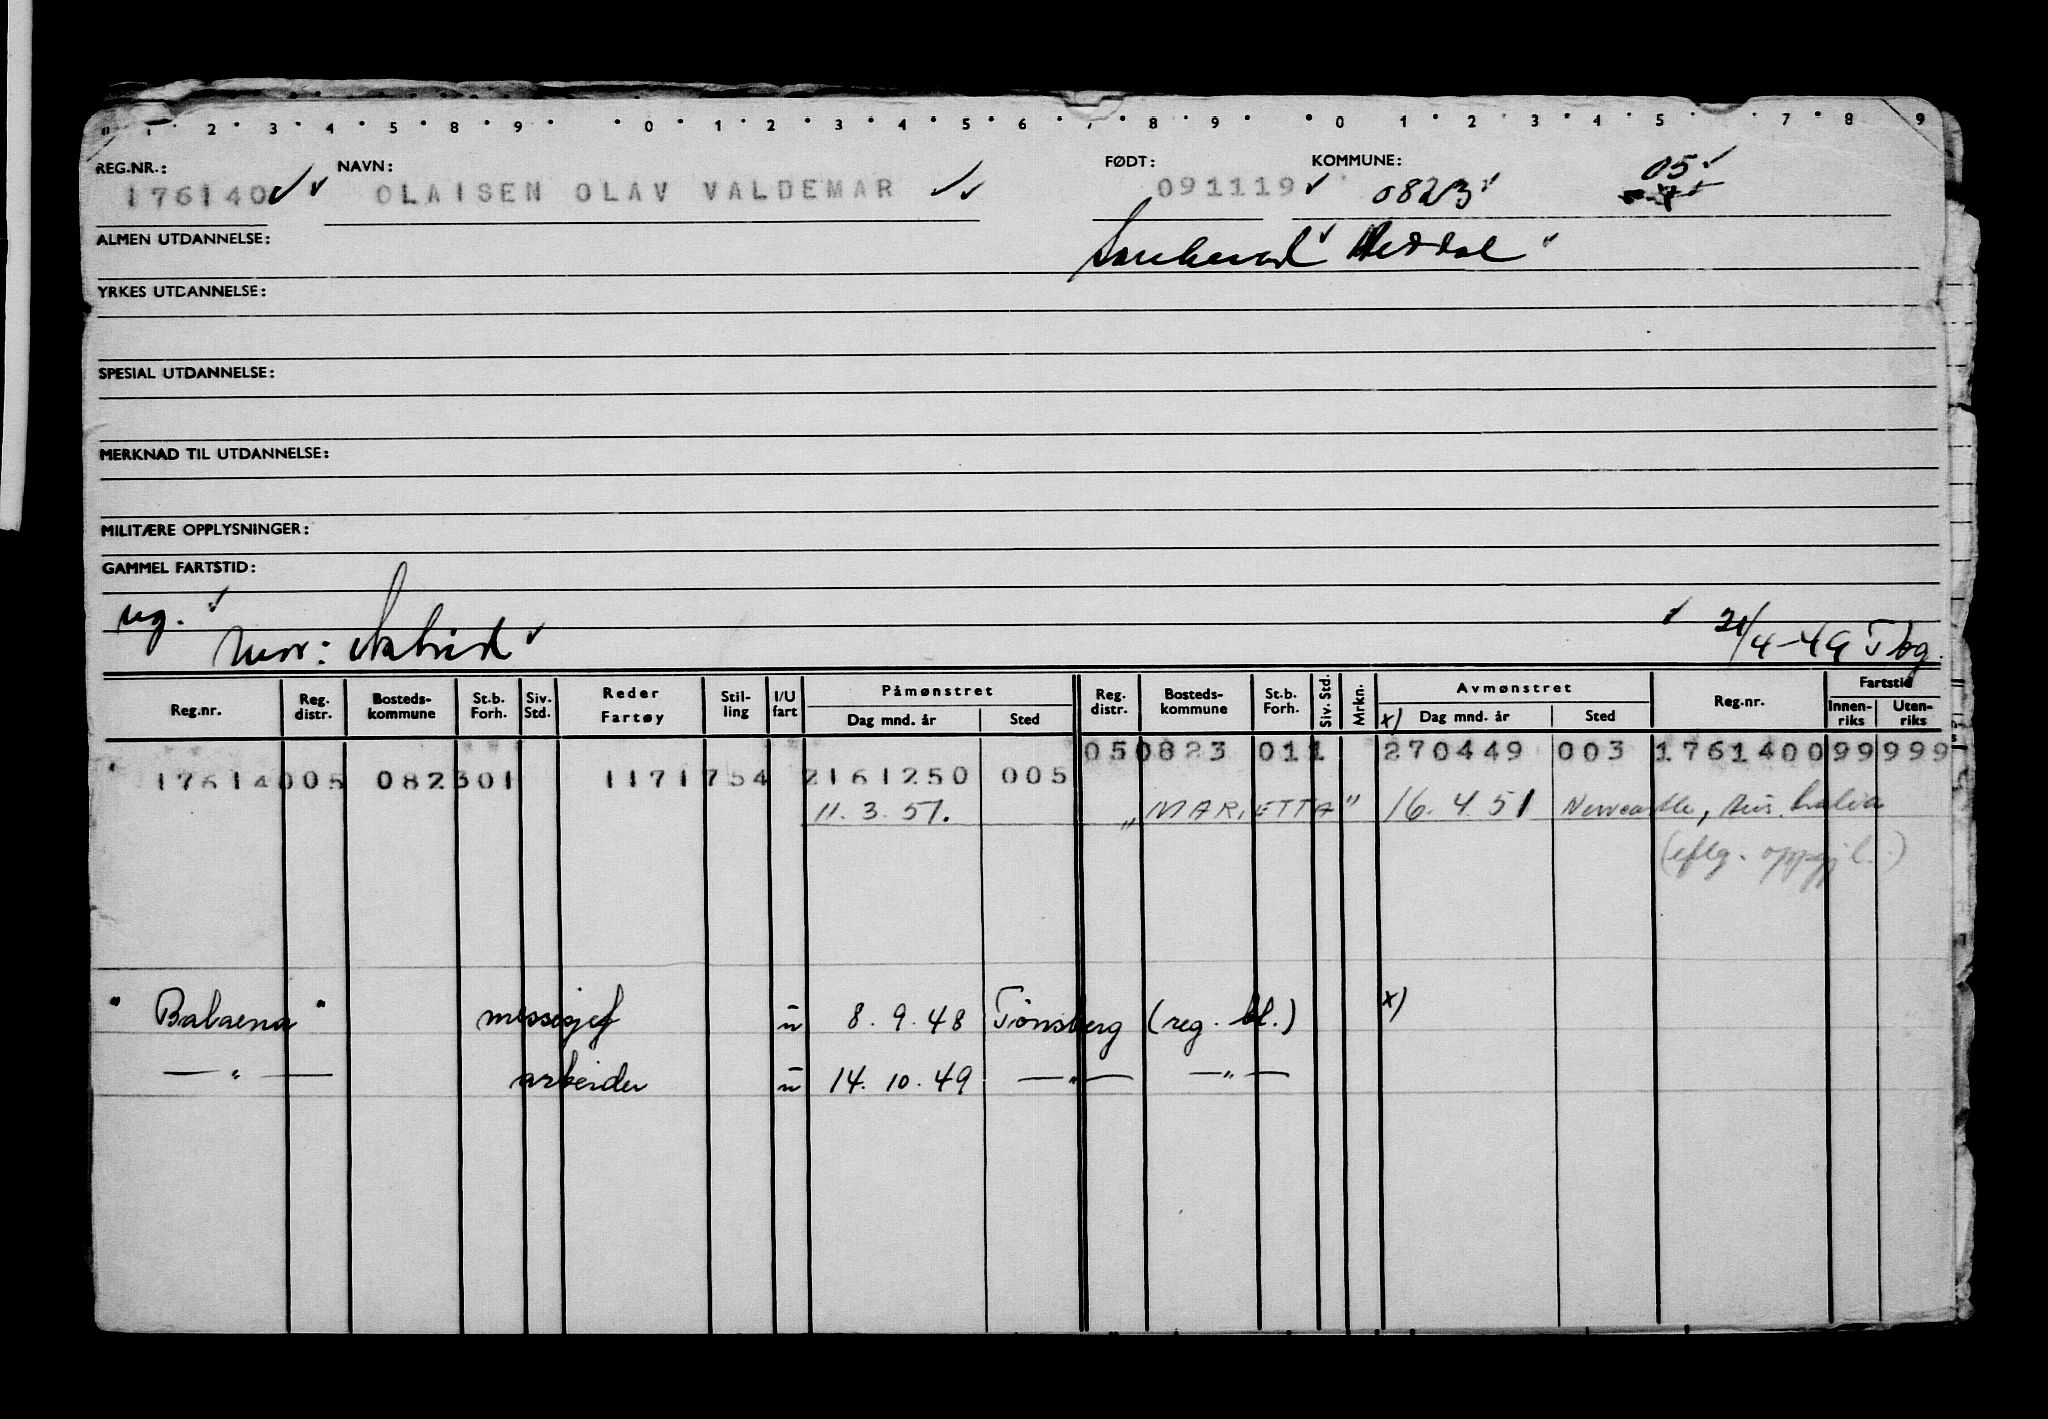 0 1 2 3 4 5 8 9 0 1 2 3 4 5 6 7 8 9 0 1 2 3 4 5 7 8 9
REG.NR.: NAVN: FØDT: KOMMUNE: 05
176140 OLAISEN OLAV VALDEMAR 091119 0823
ALMEN UTDANNELSE: Sauherad Heddal
YRKES UTDANNELSE:
SPESIAL UTDANNELSE:
MERKNAD TIL UTDANNELSE:
MILITÆRE OPPLYSNINGER:
GAMMEL FARTSTID:
ug.
Mor: Astrid 21/4-49 Tbg.
Reg.nr. Reg. distr. Bosteds-kommune St.b. Forh. Siv. Std. Reder Fartøy Stil-ling I/U fart Påmønstret Dag mnd. år Sted Reg. distr. Bosteds-kommune St.b. Forh. Siv. Std. Mrkn. Avmønstret x) Dag mnd. år Sted Reg.nr. Fartstid Innen-riks Uten-riks
050823 011 270449 003 176140099999
176140005 082301 1171754 2161250 005
11.3.51. "MARIETTA" 16.4.51 Newcastle, Australia
(eflg. oppgj.)
"Balaena" messegj u 8.9.48 Tønsberg (reg. bl.) x)
—"— arbeider u 14.10.49 —"— —"—